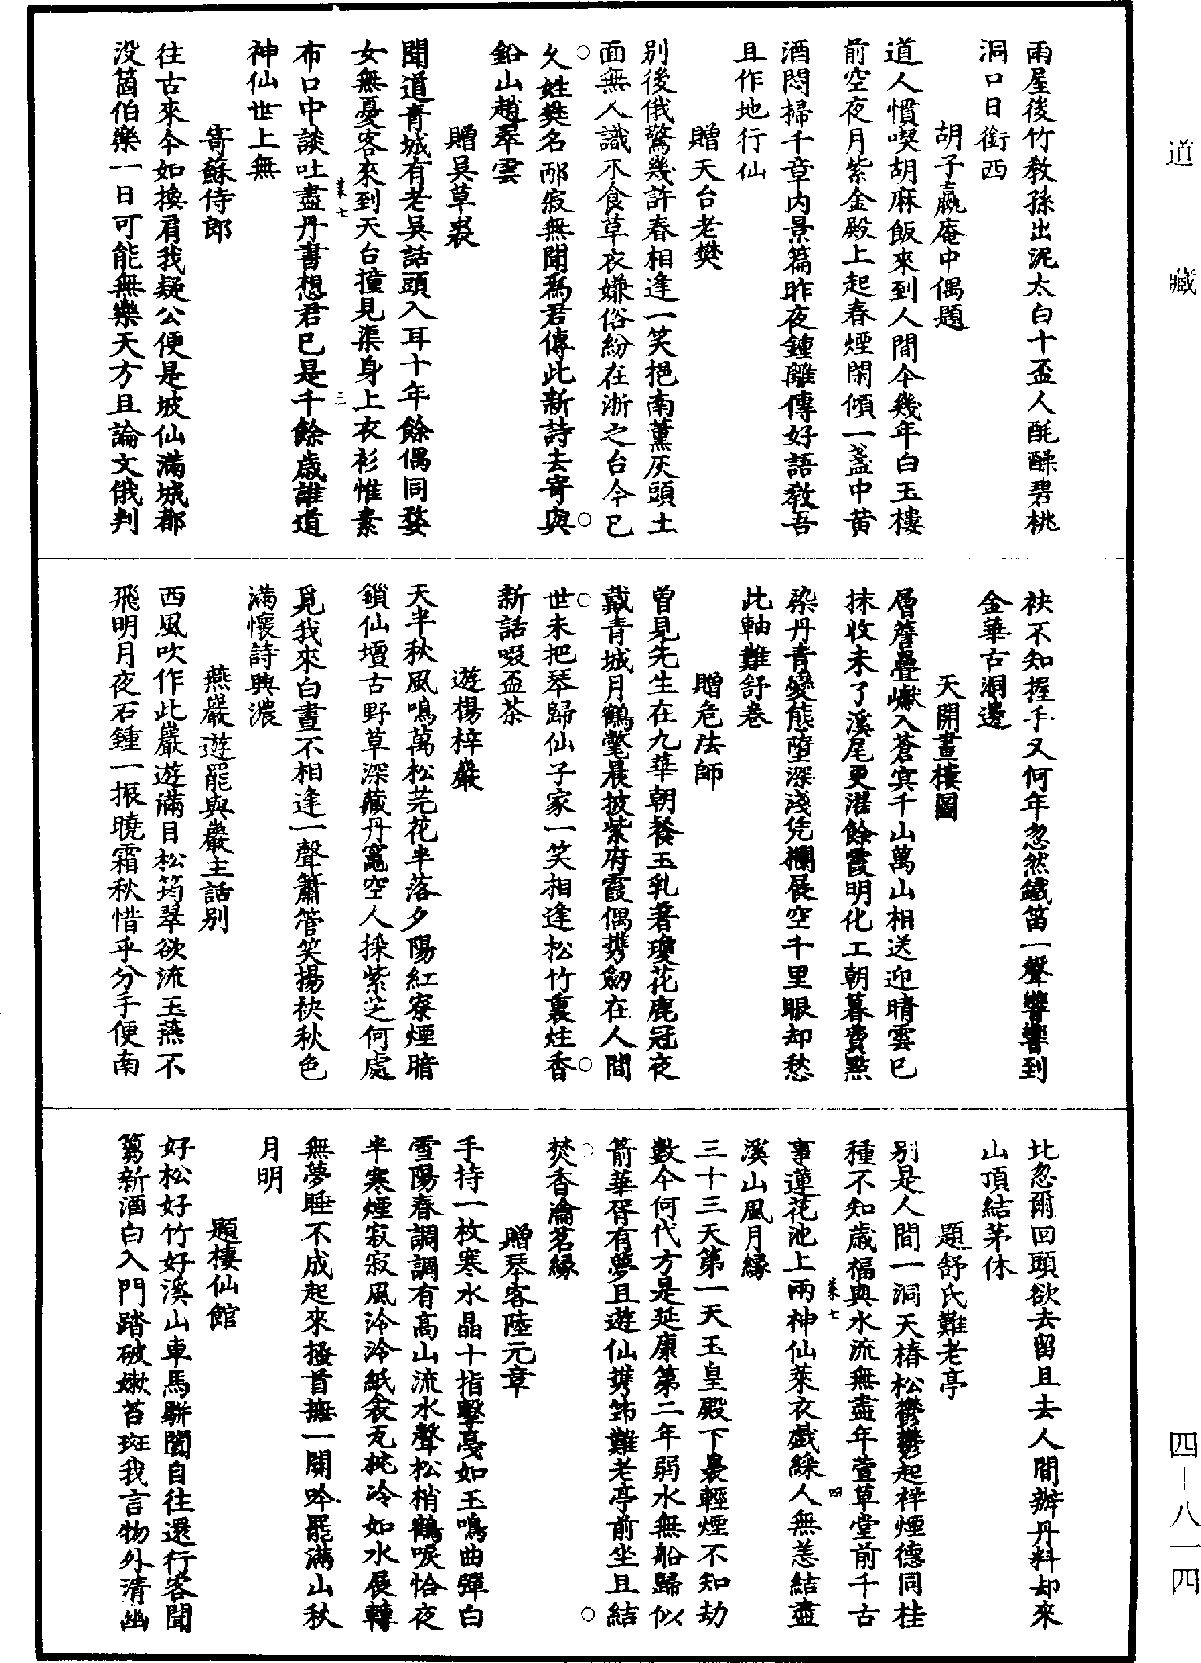 道藏
雨屋後竹教孫出泥太白十盃人酕醄碧桃
洞口日銜西
胡子嬴庵中偶題
道人慣喫胡麻飯來到人間今幾年白玉樓
前空夜月紫金殿上起春煙閑傾一盞中黄
酒悶掃千章内景篇昨夜鍾離傳好語教吾
且作地行仙
贈天台老樊
别後俄驚幾許春相逢一笑挹南薰灰頭土
面無人識木食草衣嫌俗紛在浙之台今已
久姓樊名邴寂無聞為君傳此新詩去寄與
鉛山趙翠雲
贈吳草裘
聞道青城有老吳話頭入耳十年餘偶同婺
女無憂客來到天台撞見渠身上衣衫惟素
布口中談吐盡丹書想君已是千餘歲誰道
神仙世上無
寄蘇侍郎
往古來今如換肩我疑公便是坡仙滿城都
没箇伯樂一日可能無樂天方且論文俄判
袂不知握手又何年忽然鐵笛一聲響響到
金華古洞邊
天開畫樓圖
層簷疊巘入蒼㝠千山萬山相送迎晴雲已
抹收未了溪尾更濕餘霞明化工朝暮費點
染丹青變態墮深淺凭欄展空千里眼却愁
此軸難舒卷
贈危法師
曾見先生在九華朝餐玉乳著瓊花鹿冠夜
戴青城月鶴氅晨披紫府霞偶携劒在人間
世未把琴歸仙子家一笑相逢松竹裏炷香
新話啜盃茶
遊楊梓巖
天半秋風鳴萬松芫花半落夕陽紅寮煙暗
鎖仙壇古野草深藏丹竈空人採紫芝何處
覓我來白晝不相逢一聲簫管笑揚袂秋色
滿懷詩興濃
燕巖遊罷與巖主話别
西風吹作此巖遊滿目松筠翠欲流玉燕不
飛明月夜石鍾一振曉霜秋惜乎分手便南
北忽爾回頭欲去留且去人間辦丹料却來
山頂結茅休
題舒氏難老亭
别是人間一洞天椿松鬱鬱起祥煙德同桂
種不知歲福與水流無盡年萱草堂前千古
事蓮花池上兩神仙萊衣戲綵人無恙結盡
溪山風月緣
三十三天第一天玉皇殿下裊輕煙不知劫
數今何代方是延康第二年弱水無船歸似
箭華胥有夢且遊仙携筇難老亭前坐且結
焚香瀹茗緣
贈琴客陸元章
手持一枚寒水晶十指擊戞如玉鳴曲彈白
雪陽春調調有高山流水聲松梢鶴唳恰夜
半寒煙寂寂風泠泠紙衾瓦枕冷如水展轉
無夢睡不成起來搔首撫一闋吟罷滿山秋
月明
題棲仙館
好松好竹好溪山車馬駢闐自往還行客聞
篘新酒白入門踏破嫩苔斑我言物外清幽
四-八一四